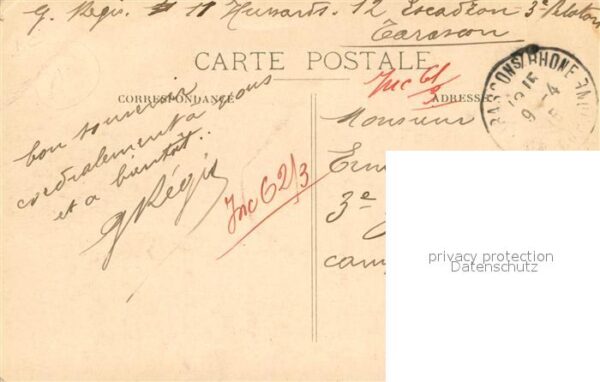 G. Régis. 11 Hussards. 12 Escadron 3e Peloton
Tarascon
CARTE POSTALE
CORRESPONDANCE
ADRESSE
Inc 61/9
bon souvenir
cordialement a vous
et a bientôt..
GRégis
Inc 62/3
Monsieur
3e
TARASCON S/ RHONE
9 -4
privacy protection
Datenschutz